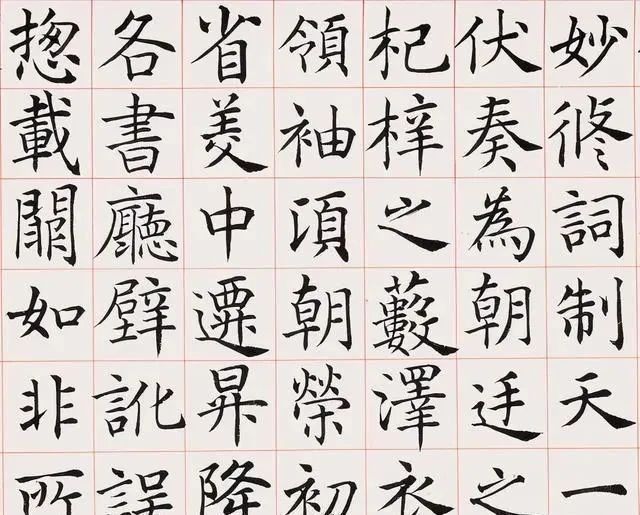 妙修詞制天一
伏奏為朝廷之
杞梓之藪澤衣
領袖頃朝榮初
省美中遷昇降
各書廳壁訛誤
揔載闕如非所